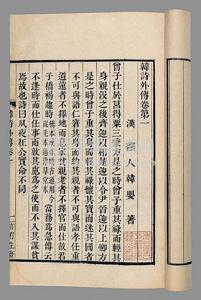 韓詩外傳卷第一
漢 燕人韓嬰 著
曾子仕於莒得粟三秉方是之時曾子重其祿而輕其
身親沒之後齊迎以相楚迎以令尹晉迎以上卿方
是之時曾子重其身而輕其祿懷其寶而迷其國者
不可與語仁窘其身而約其親者不可與語孝任重
道遠者不擇地而息家貧親老者不擇官而仕故君
子橋褐趨時當務為急傳云
不逢時而仕任事而敦其慮為之使而不入其謀貧
焉故也詩曰夙夜在公實命不同